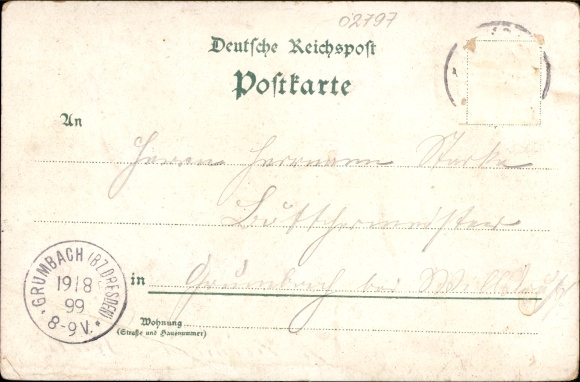 02797
Deutsche Reichspost
Postkarte
An
Herrn Herrmann Starke
Böttchermeister
in Grumbach bei Wilsdruff
Wohnung
(Straße und Hausnummer)
GRUMBACH (BZ. DRESDEN)
19/8
99
8-9V.